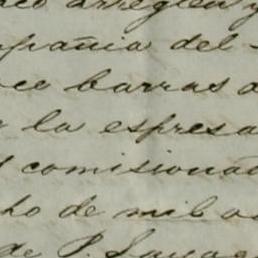 arreglen y
pañia del
ce barras d
la espresa
comisionad
ho de mil oc
de P.